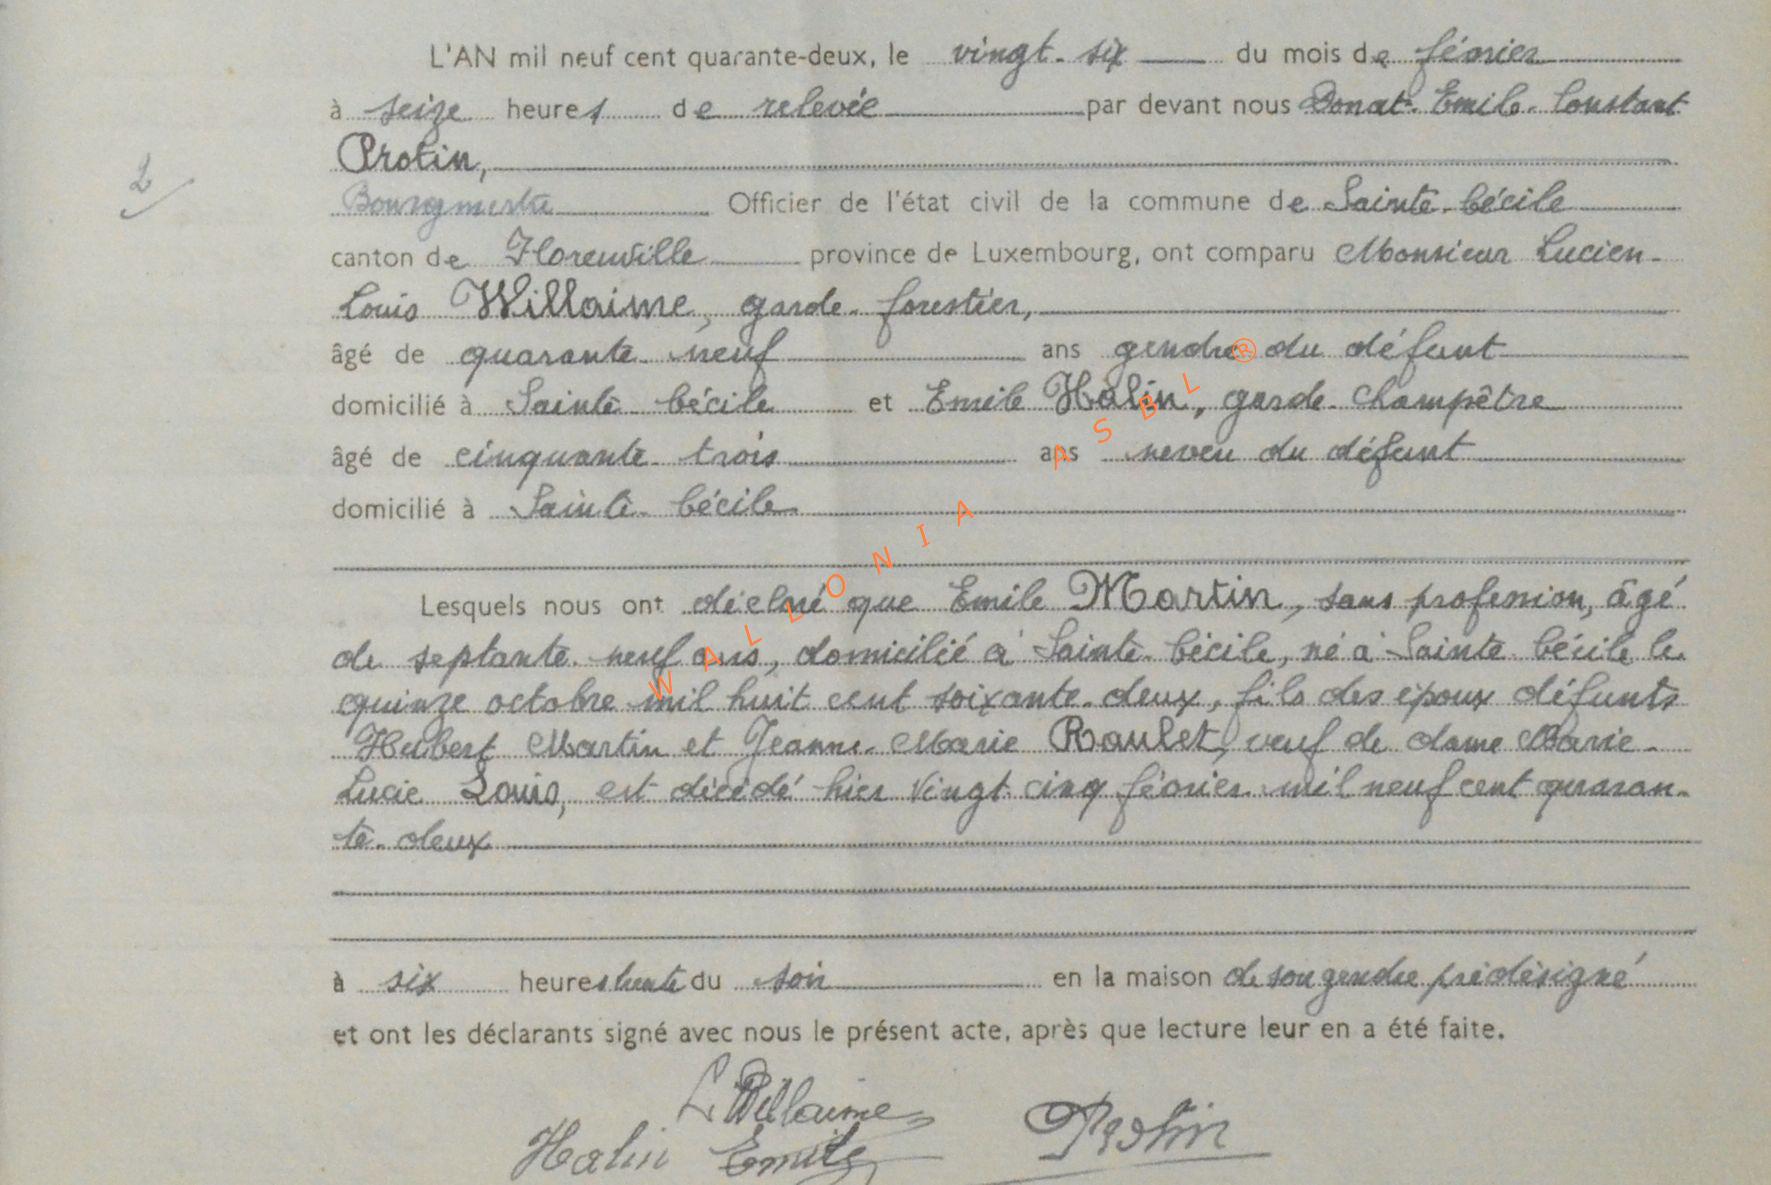 L'AN mil neuf cent quarante-deux, le vingt-six du mois de février
à seize heures de relevée par devant nous Donat-Emile-Constant
Protin,
2
Bourgmestre Officier de l'état civil de la commune de Sainte-Cécile
canton de Florenville province de Luxembourg, ont comparu Monsieur Lucien-
Louis Willaime, garde-forestier,
âgé de quarante-neuf ans gendre du défunt
domicilié à Sainte-Cécile et Emile Halin, garde-champêtre
âgé de cinquante-trois ans neveu du défunt
domicilié à Sainte-Cécile
WALLONIA ASBL ®
Lesquels nous ont déclaré que Emile Martin, sans profession, âgé
de septante-neuf ans, domicilié à Sainte-Cécile, né à Sainte-Cécile le
quinze octobre mil huit cent soixante-deux, fils des époux défunts
Hubert Martin et Jeanne-Marie Raulet, veuf de dame Marie-
Lucie Louis, est décédé hier vingt-cinq février mil neuf cent quaran-
te-deux
à six heures trente du soir en la maison de son gendre prédésigné
et ont les déclarants signé avec nous le présent acte, après que lecture leur en a été faite.
L. Willaime
Halin Emile Protin